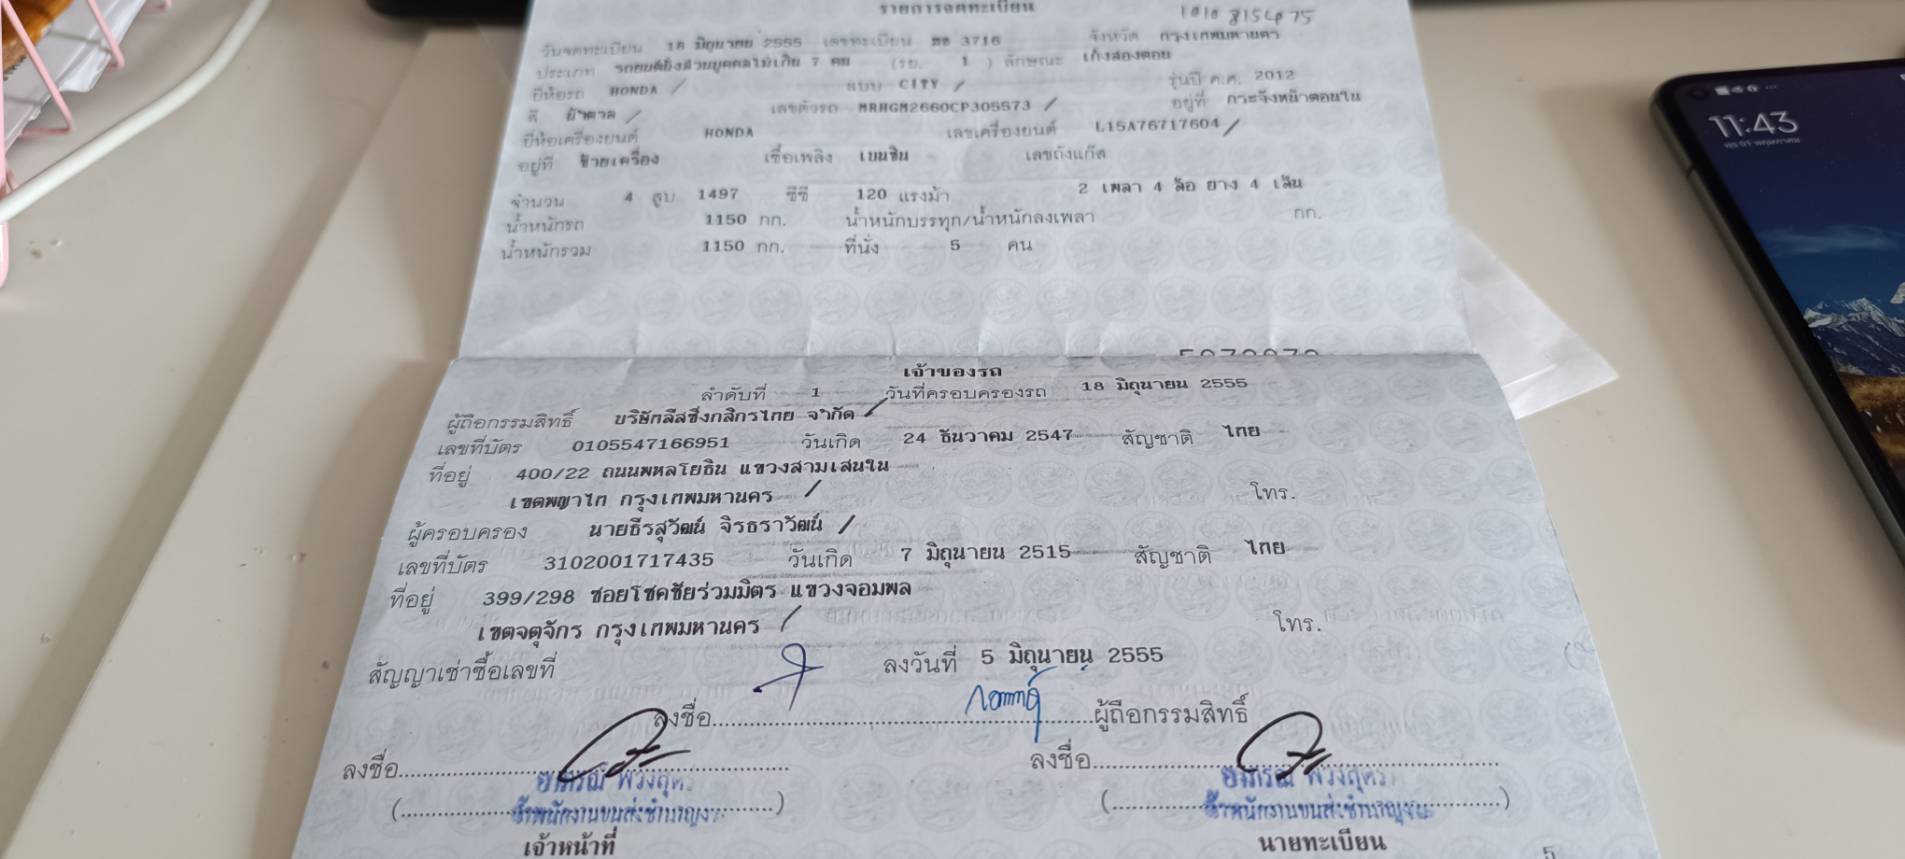 รายการจดทะเบียน
วันจดทะเบียน 18 มิถุนายน 2555 เลขทะเบียน 3716 จังหวัด กรุงเทพมหานคร
ประเภท รถยนต์นั่งส่วนบุคคลไม่เกิน 7 คน (รย. 1 ) ลักษณะ เก๋งสองตอน
ยี่ห้อรถ HONDA / แบบ CITY / รุ่นปี ค.ศ. 2012
สี น้ำตาล / เลขตัวรถ MRHGM2660CP305573 / อยู่ที่ กระจังหน้าตอนใน
ยี่ห้อเครื่องยนต์ HONDA เลขเครื่องยนต์ L15A76717604 /
อยู่ที่ ซ้ายเครื่อง เชื้อเพลิง เบนซิน เลขถังแก๊ส
จำนวน 4 สูบ 1497 ซีซี 120 แรงม้า 2 เพลา 4 ล้อ ยาง 4 เส้น
น้ำหนักรถ 1150 กก. น้ำหนักบรรทุก/น้ำหนักลงเพลา กก.
น้ำหนักรวม 1150 กก. ที่นั่ง 5 คน
เจ้าของรถ
ลำดับที่ 1 วันที่ครอบครองรถ 18 มิถุนายน 2555
ผู้ถือกรรมสิทธิ์ บริษัทลีสซิ่งกสิกรไทย จำกัด /
เลขที่บัตร 0105547166951 วันเกิด 24 ธันวาคม 2547 สัญชาติ ไทย
ที่อยู่ 400/22 ถนนพหลโยธิน แขวงสามเสนใน
เขตพญาไท กรุงเทพมหานคร / โทร.
ผู้ครอบครอง นายธีรสุวัฒน์ จิรธราวัฒน์ /
เลขที่บัตร 3102001717435 วันเกิด 7 มิถุนายน 2515 สัญชาติ ไทย
ที่อยู่ 399/298 ซอยโชคชัยร่วมมิตร แขวงจอมพล
เขตจตุจักร กรุงเทพมหานคร / โทร.
สัญญาเช่าซื้อเลขที่ ลงวันที่ 5 มิถุนายน 2555
ลงชื่อ ผู้ถือกรรมสิทธิ์
ลงชื่อ ลงชื่อ
เจ้าหน้าที่ นายทะเบียน
5
11:43